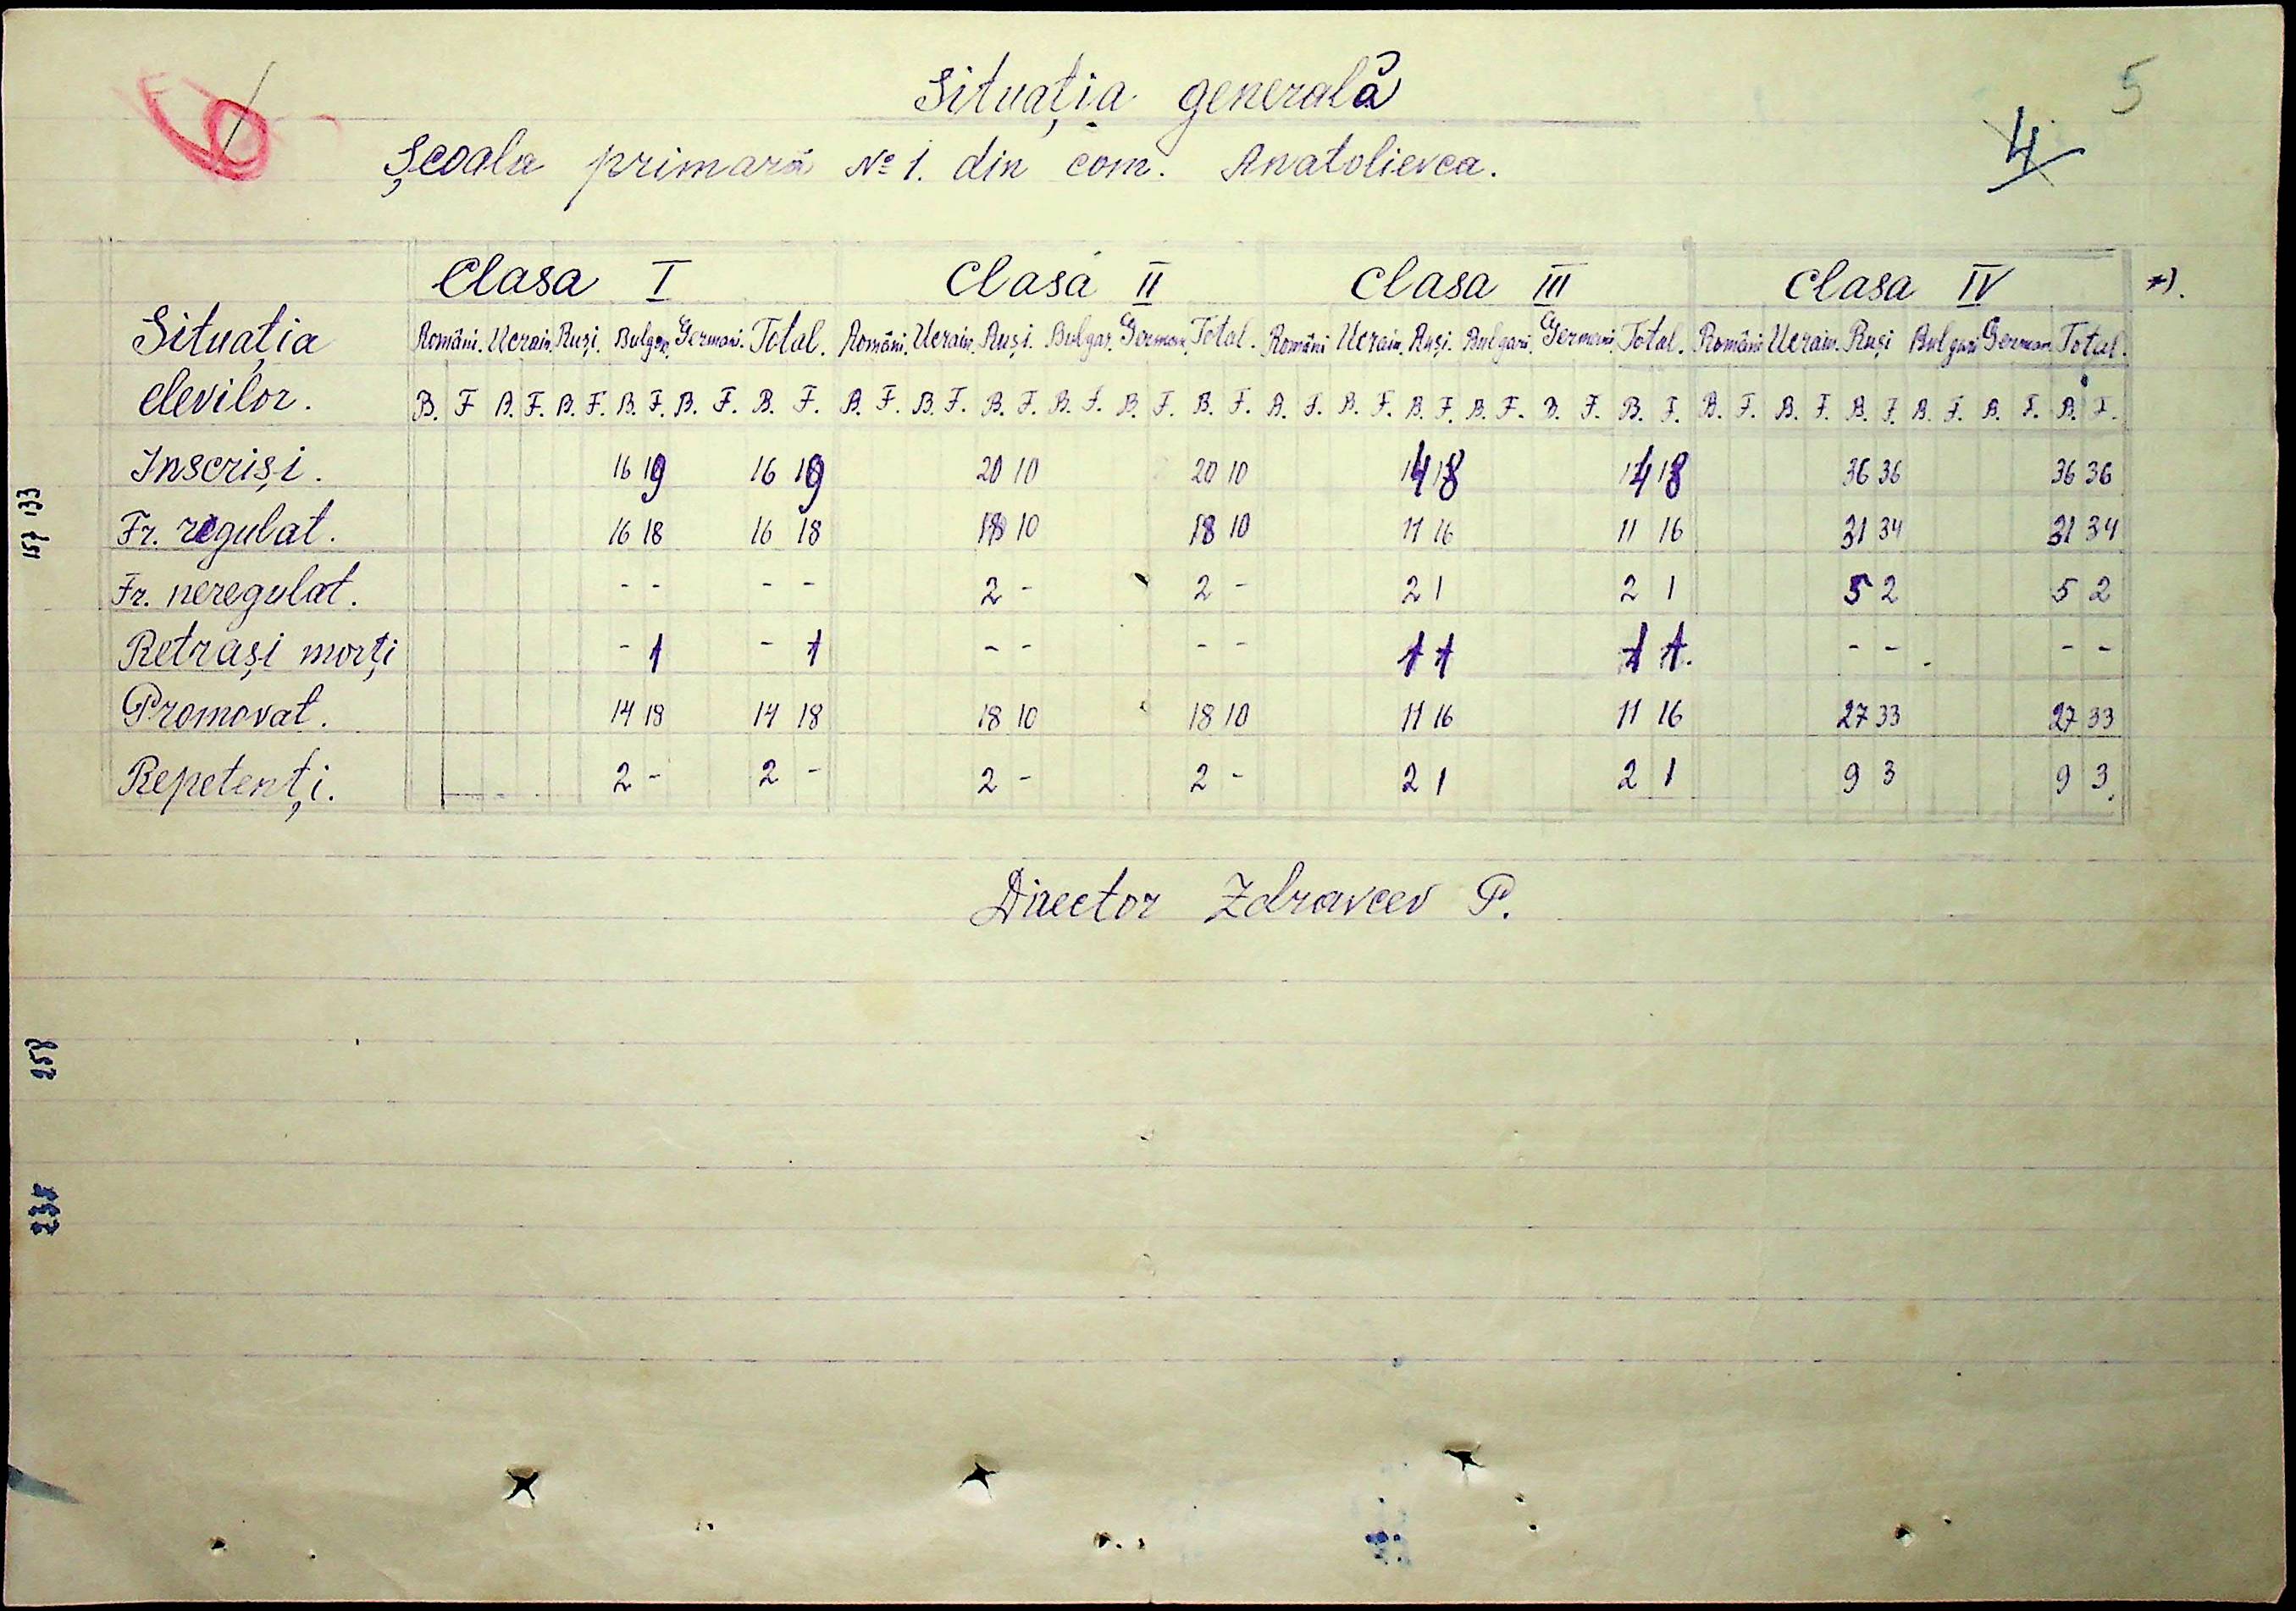 5
6
4
Situația generală
Școala primară № 1. din com. Anatolievca.
Situația elevilor. Clasa I Clasa II Clasa III Clasa IV *).
Români. Ucrain. Ruși. Bulgar. Germani. Total. Români. Ucrain. Ruși. Bulgar. German. Total. Români Ucrain. Ruși. Bulgari. Germani. Total. Români Ucrain. Ruși Bulgari German Total.
B. F B. F. B. F. B. F. B. F. B. F. B. F. B. F. B. F. B. F. B. F. B. F. B. F. B. F. B. F. B. F. B. F. B. F. B. F. B. F. B. F. B. F. B. F. B. F.
Inscriși. 16 19 16 19 20 10 20 10 14 18 14 18 36 36 36 36
Fr. regulat. 16 18 16 18 18 10 18 10 11 16 11 16 31 34 31 34
Fr. neregulat. - - - - 2 - 2 - 2 1 2 1 5 2 5 2
Retrași morți - 1 - 1 - - - - 1 1 1 1. - - - -
Promovat. 14 18 14 18 18 10 18 10 11 16 11 16 27 33 27 33
Repetenți. 2 - 2 - 2 - 2 - 2 1 2 1 9 3 9 3
Director Zdravcev P.
157 133
258
235